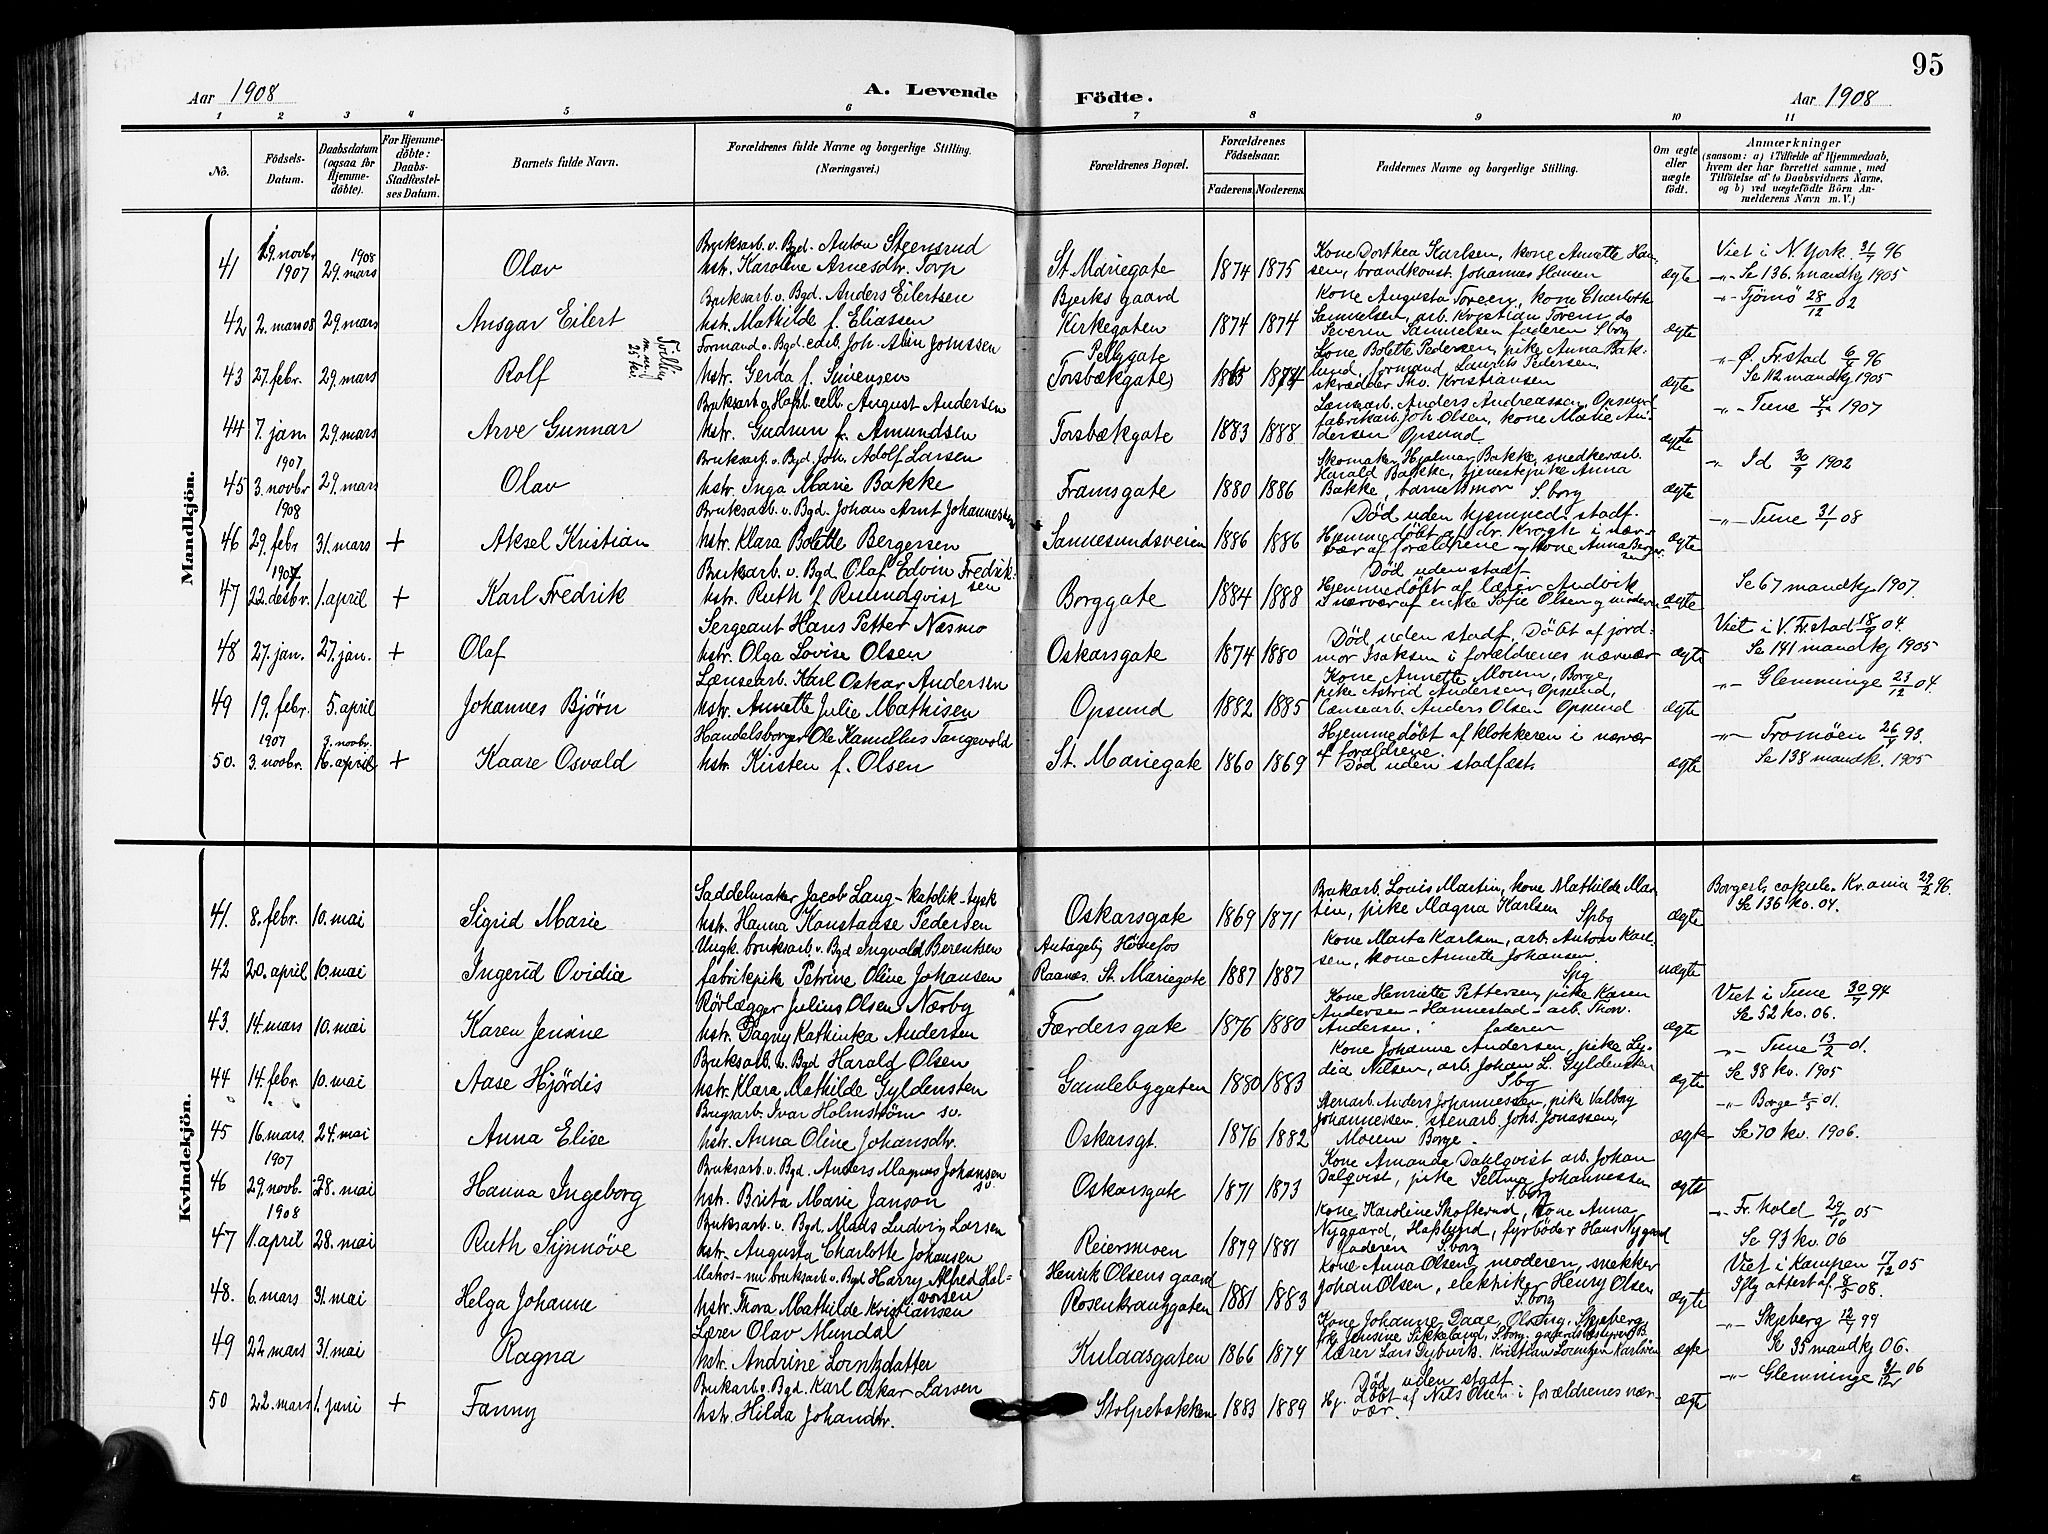 95
Aar 1908 A. Levende Födte. Aar 1908
1 2 3 4 5 6 7 8 9 10 11
No. Födsels-Datum. Daabsdatum (ogsaa for Hjemme-döbte). For Hjemme-döbte: Daabs-Stadfæstel-ses Datum. Barnets fulde Navn. Forældrenes fulde Navne og borgerlige Stilling. (Næringsvei.) Forældrenes Bopæl. Forældrenes Födselsaar. Faderens. Moderens. Faddernes Navne og borgerlige Stilling. Om ægte eller uægte födt. Anmærkninger (saasom: a) i Tilfælde af Hjemmedaab, hvem der har forrettet samme, med Tilföielse af to Daabsvidners Navne, og b) ved uægtefödte Börn An-melderens Navn m. V.)
Mandkjön.
41 19. novbr 1907 1908 29. mars Olav
Bruksarb. v. Bgd. Anton Steensrud
hstr. Karoline Arnesdtr. Torp
St. Mariegate 1874 1875
Kone Dorthea Karlsen, kone Annette Han-
sen, brandkonst. Johannes Hansen
ægte
Viet i N. York. 31/7 96
-"- Se 136. mandkj 1905
42 2. mars 08 29. mars Ansgar Eilert
Bruksarb. v. Bgd. Anders Eilertsen
hstr. Mathilde f. Eliassen
Bjerks gaard
Kirkegaten 1874 1874
Kone Augusta Toreen, kone Charlotte
Samuelsen, arb. Kristian Torem do
Severin Samuelsen faderen S.borg
ægte
-"- Tjömö 28/12 02
43 27. febr. 29. mars Rolf
Tvilling
Formand v. Bgd. Joh. Johnssen
hstr. Gerda f. Simensen
Pellygate
Torsbækgate 1865 1874
Kone Bolette Pedersen, pike Anna Bak-
lund, formand Laurits Pedersen,
skrædder Thv. Kristiansen
ægte
-"- Ø. Fr.stad 6/4 96
Se 112 mandkj 1905
44 7. jan 29. mars Arve Gunnar
August Andersen
hstr. Gudrun f. Amundsen
Torsbækgate 1883 1888
Lænsearb. Anders Andreassen, Opsund,
fabrikarb. Joh. Olsen, kone Marie An-
dersen Opsund
ægte
-"- Tune 4/5 1907
45 1907 3. novbr 29. mars Olav
Bruksarb. v. Bgd. Joh. Adolf Larsen
hstr. Inga Marie Bakke
Framsgate 1880 1886
Skomaker Hjalmar Bakke, snedkerarb.
Harald Bakke, tjenestepike Anna
Bakke, barnets mor S.borg
ægte
-"- Id 30/9 1902
46 1908 29. febr 31. mars + Aksel Kristian
Bruksarb. v. Bgd. Johan Arnt Johannesen
hstr. Klara Bolette Bergersen
Sannesundsveien 1886 1886
Död uden hjemmed. stadf.
Hjemmedöbt af dr. Krogh i nær-
vær af forældrene og kone Anna Berger-
sen
ægte
-"- Tune 31/1 08
47 1907 22. desbr. 1. april + Karl Fredrik
Bruksarb. v. Bgd Olaf Edvin Fredrik-
sen
hstr. Ruth f. Rundqvist
Borggate 1884 1888
Död uden stadf.
Hjemmedöbt af lærer Andvik
i nærvær af enke Sofie Olsen og moderen
ægte
Se 67 mandkj 1907.
48 27. jan. 27. jan. + Olaf
Sergeant Hans Petter Næsmo
hstr. Olga Lovise Olsen
Oskarsgate 1874 1880
Död uden stadf. Döbt af jord-
mor Isaksen i forældrenes nærvær
ægte
Viet i V. Fr.stad 18/9 04.
Se 141 mandkj 1905
49 19. febr. 5. april Johannes Bjørn
Lænsearb. Karl Oskar Andersen
hstr. Annette Julie Mathisen
Opsund 1882 1885
Kone Annette Moum, Borge,
pike Astrid Andersen, Opsund,
Lænsearb. Anders Olsen Opsund
ægte
-"- Glemminge 23/12 04.
50. 1907 3. novbr. 3. novbr. 16. april + Kaare Osvald
Handelsborger Ole Kamillus Tangevold
hstr. Kristen f. Olsen
St. Mariegate 1860 1869
Hjemmedöbt af klokkeren i nærvær
af forældrene
Död uden stadfæst.
ægte
-"- Tromöen 26/4 93.
Se 138 mandk. 1905
Kvindekjön.
41. 8. febr. 10. mai Sigrid Marie
Saddelmaker Jacob Lang - katolik - tysk
hstr. Hanna Konstanse Pedersen
Oskarsgate 1869 1871
Brukarb. Louis Martin, kone Mathilde Mar-
tin, pike Magna Karlsen Spbg
ægte
Borgerl. copuler. Kr.ania 29/2 96.
Se 136 kv. 04.
42 20. april 10. mai Ingerid Ovidia
Ungk. bruksarb. v. Bgd Ingvald Berentsen
fabrikpike Petrine Oline Johansen
Antagelig Hönefos
Raanæs. St. Mariegate 1887 1887
Kone Marta Karlsen, arb. Anton Karl-
sen, kone Annette Johansen.
Spg
uægte
43. 14. mars 10. mai Karen Jensine
Rörlægger Julius Olsen Nærby
hstr. Dagny Kathinka Andersen
Færdersgate 1876 1880
Kone Henriette Pettersen, pike Karen
Andersen - Hannestad - arb. Thorv.
Andersen. faderen
ægte
Viet i Tune 30/9 94
Se 52 kv. 06.
44 14. febr. 10. mai Aase Hjördis
Bruksarb. v. Bgd Harald Olsen
hstr. Klara Mathilde Gyldensten
Gamlebygaten 1880 1883
Kone Johanne Andersen, pike Ly-
dia Nilsen, arb. Johan L. Gyldensten
Sbg
ægte
-"- Tune 13/2 01.
Se 38 kv. 1905
45 16. mars. 24. mai Anna Elise
Brugsarb. Ivar Holmström sv.
hstr. Anna Oline Johansdtr.
Oskarsgt. 1876 1882
Stenarb. Anders Johannessen, pike Valborg
Johannessen, stenarb. Johs. Jonassen,
Moum Borge.
ægte
-"- Borge 5/5 01.
Se 70 kv. 1906.
46 1907 29. novb. 28. mai Hanna Ingeborg
Bruksarb. v. Bgd. Anders Magnus Johansen
sv.
hstr. Brita Marie Janson
Oskarsgate 1871 1873
Kone Amanda Dahlqvist arb. Johan
Dalqvist, pike Selma Johannessen
S.borg
ægte
47 1908 11. april 28. mai Ruth Synnöve
Bruksarb. v. Bgd. Mads Ludvig Larsen
hstr. Augusta Charlotte Johansen
Reiermoen 1879 1881
Kone Karoline Skofterud, kone Anna
Nygaard, Haslund, fyrböder Hans Nygaard
faderen S.borg
ægte
-"- Fr.hald 29/10 05
Se 93 kv. 06
48. 6. mars 31. mai Helga Johanne
Matros - nu bruksarb. v. Bgd Harry Alfred Hal-
vorsen
hstr. Thora Mathilde Kristiansen
Henrik Olsens gaard
Rosenkrantzgaten 1881 1883
Kone Anna Olsen, moderen, snekker
Johan Olsen, elektriker Henry Olsen
S.borg
ægte
Viet i Kampen 17/12 05
Iflg attest af 8/5 08.
49 22 mars 31. mai Ragna
Lærer Olav Mundal
hstr. Andrine Lorntzdatter
Kulaasgaten 1866 1874
Kone Johanne Daae, Skjeberg,
frk. Jensine Sikkeland, S.borg,
lærer Lars Dybvik. Kristian Lorntzen
ægte
-"- Skjeberg 12/7 99
Se 35 mandkj 06.
50 22. mars 1. juni + Fanny
Brukarb. v. Bgd. Karl Oskar Larsen
hstr. Hilda Johandtr.
Stolpebakken 1883 1889
Död uden stadf.
Hj. döbt af Nils Olsen i forældrenes nær-
vær.
ægte
-"- Glemminge 31/12 06